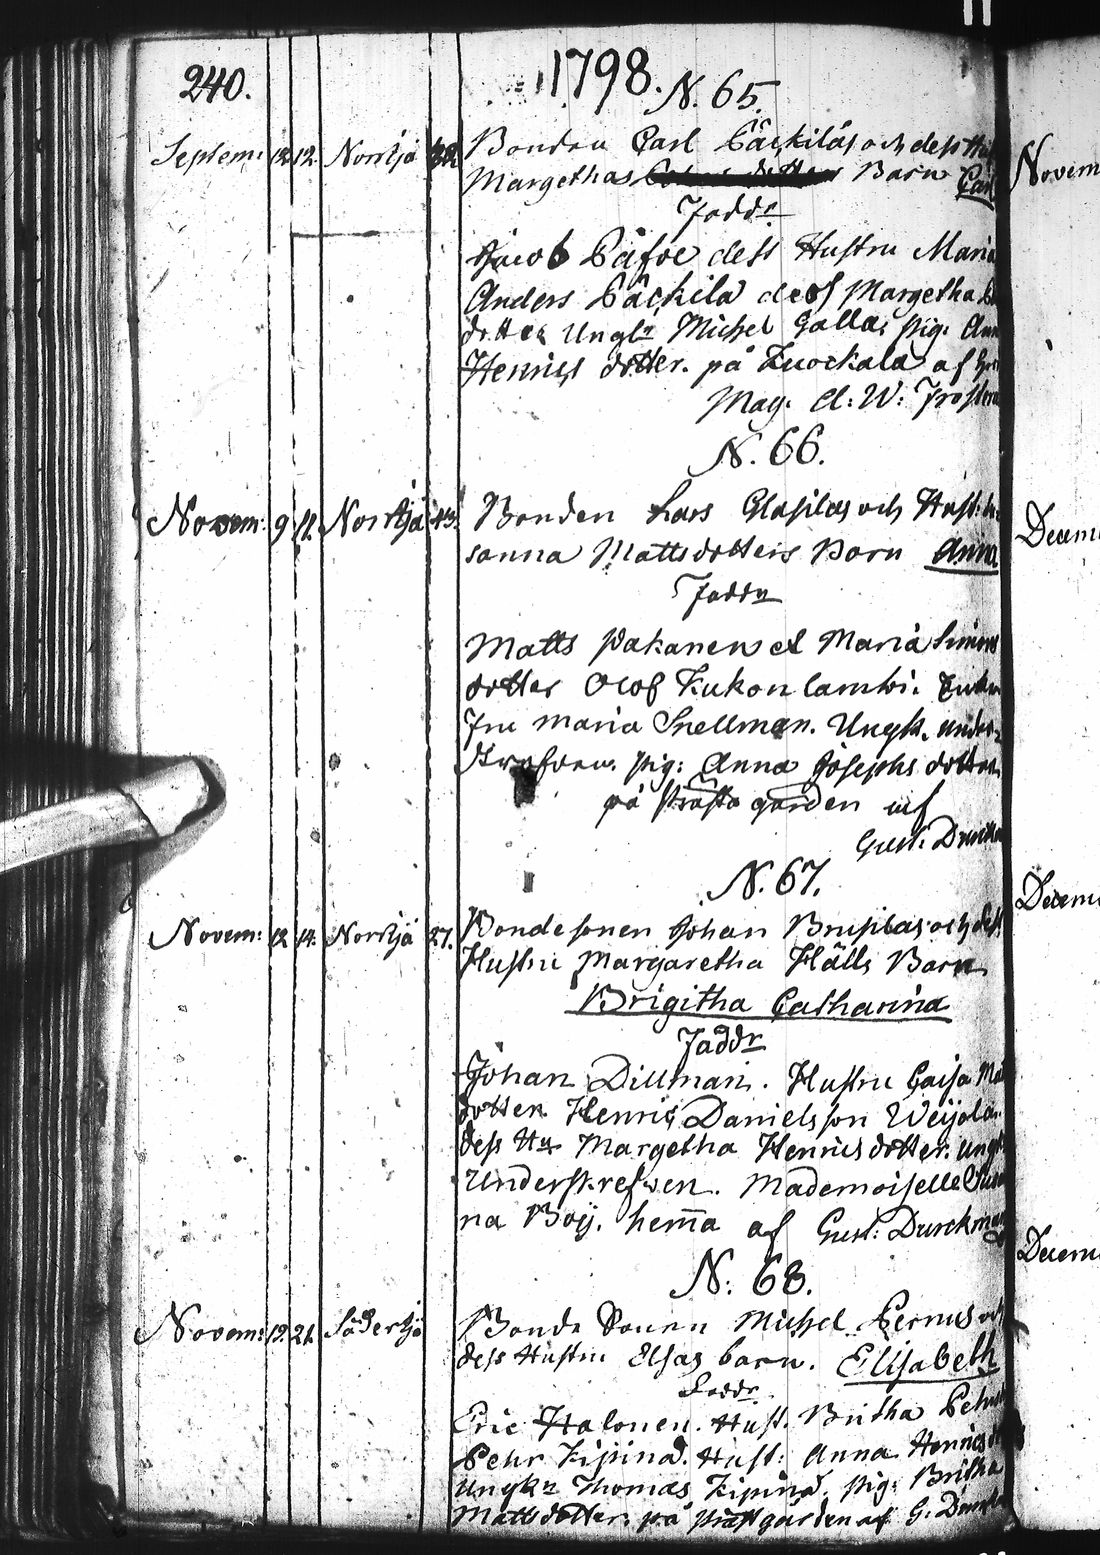 240. 1798.
N. 65.
Septem: 12 12. Norrsjö 32. Bonden Carl Päckiläs och dess
Margethas Barn Carl
Faddr
Jacob Påfve dess Hustru Maria
Anders Päckilä Margetha
dotter Ungkr Michel Galla: pig: Ann
Henrics dotter. på Kuockala af
Mag. A: W: Frosteru
N. 66.
Novem: 9 11. Norrsjö 43. Bonden Lars Hust:
sanna Mattsdotters Barn Anna
Faddr
Matts Pakanen et Maria Simons
dotter Olof Kukon lambi. Enke
Fru Maria Snellman. Ungk. under-
Skrefven. pig: Anna Josephs dotter
på Prästegården af
Gust: Durckm
N. 67.
Novem: 12 14. Norrsjö 27. Bondesonen Johan och dess
Hustru Margaretha Hälls Barn
Brigitha Catharina
Faddr
Johan Dillman. Hustru Caisa Ma
dotter. Henric Danielsson Weijola.
dess Hu Margetha Henricsdotter. Ungk
Underskrefven. Mademoiselle Susa
na Boij. hemma af Gust: Durckman
N: 68.
Novem: 19. 21. Södersjö Bonde Sonen Michel Pernus och
dess Hustru Elsas barn. Elisabeth
Faddr.
Eric Halonen. Hust. Britha Pehrs
Pehr Kipinä. Hust: Anna Henricsd
Ungkr Thomas Kipinä. pig: Britha
Mattsdotter. på prästgården af G: Durck
Novem
Decem
Decem
Decem